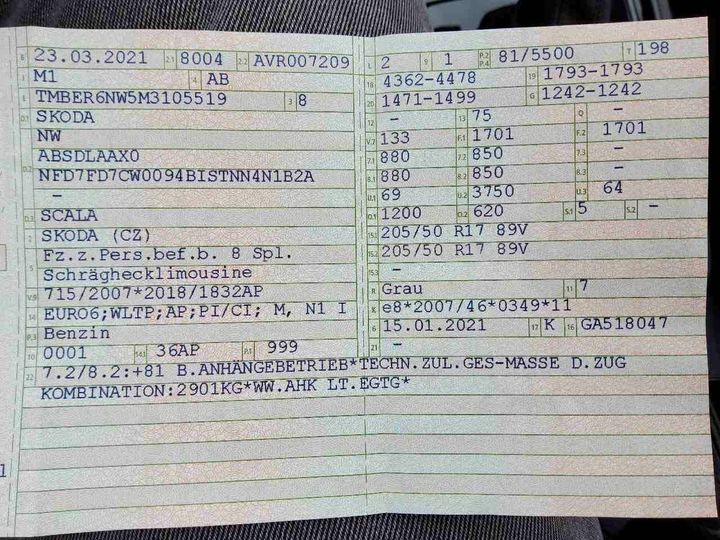 B 23.03.2021 2.1 8004 2.2 AVR007209
J M1 4 AB
E TMBER6NW5M3105519 3 8
D.1 SKODA
NW
D.2 ABSDLAAX0
NFD7FD7CW0094BISTNN4N1B2A
-
D.3 SCALA
2 SKODA (CZ)
5 Fz.z.Pers.bef.b. 8 Spl.
Schräghecklimousine
V.9 715/2007*2018/1832AP
14 EURO6;WLTP;AP;PI/CI; M, N1 I
P.3 Benzin
10 0001 14.1 36AP P.1 999
L 2 9 1 P.2 P.4 81/5500 T 198
18 4362-4478 19 1793-1793
20 1471-1499 G 1242-1242
12 - 13 75 Q -
V.7 133 F.1 1701 F.2 1701
7.1 880 7.2 850 7.3 -
8.1 880 8.2 850 8.3 -
U.1 69 U.2 3750 U.3 64
O.1 1200 O.2 620 S.1 5 S.2 -
15.1 205/50 R17 89V
15.2 205/50 R17 89V
15.3 -
R Grau 11 7
K e8*2007/46*0349*11
6 15.01.2021 17 K 16 GA518047
21 -
22 7.2/8.2:+81 B.ANHÄNGEBETRIEB*TECHN.ZUL.GES-MASSE D.ZUG
KOMBINATION:2901KG*WW.AHK LT.EGTG*